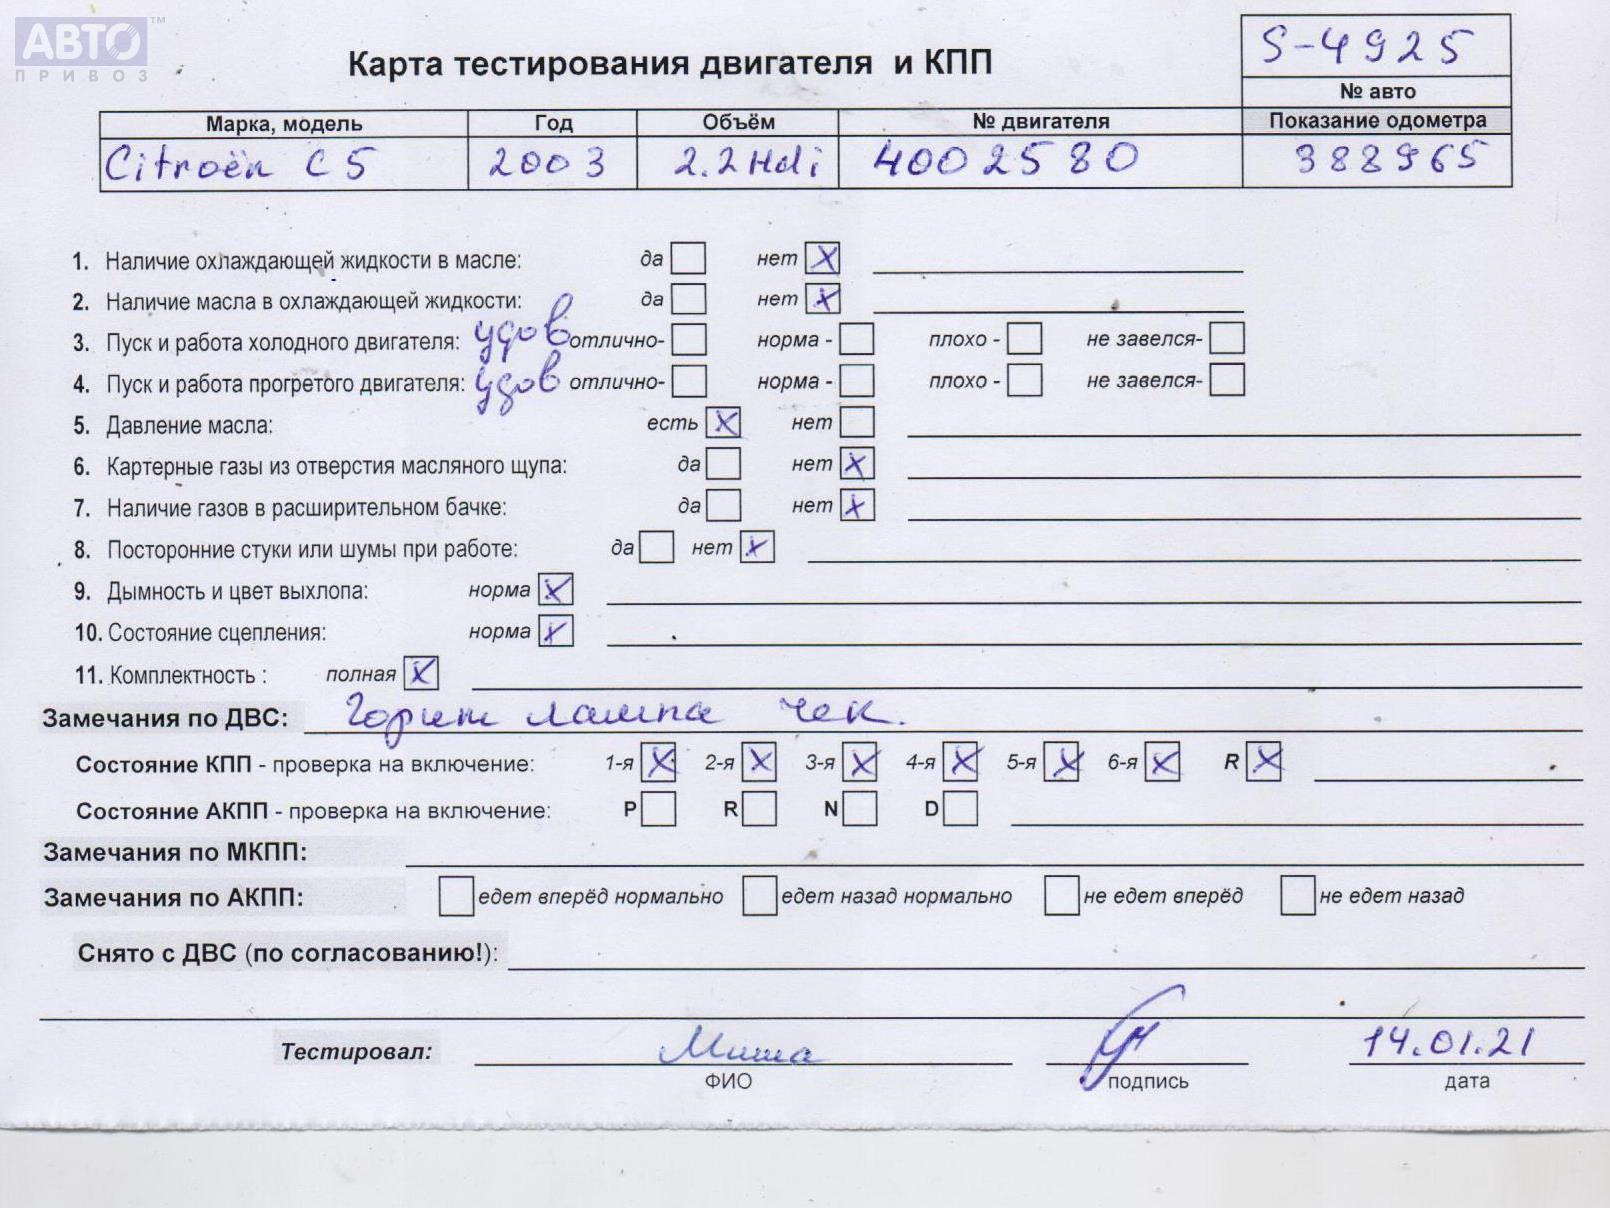 АВТО ™
ПРИВОЗ
S-4925
Карта тестирования двигателя и КПП
№ авто
Марка, модель Год Объём № двигателя Показание одометра
Citroën C5 2003 2.2 Hdi 4002580 388965
1. Наличие охлаждающей жидкости в масле: да нет X
2. Наличие масла в охлаждающей жидкости: да нет X
3. Пуск и работа холодного двигателя: удов отлично- норма - плохо - не завелся-
4. Пуск и работа прогретого двигателя: удов отлично- норма - плохо - не завелся-
5. Давление масла: есть X нет
6. Картерные газы из отверстия масляного щупа: да нет X
7. Наличие газов в расширительном бачке: да нет X
8. Посторонние стуки или шумы при работе: да нет X
9. Дымность и цвет выхлопа: норма X
10. Состояние сцепления: норма X
11. Комплектность : полная X
Замечания по ДВС: Горит лампа чек.
Состояние КПП - проверка на включение: 1-я X 2-я X 3-я X 4-я X 5-я X 6-я X R X
Состояние АКПП - проверка на включение: P R N D
Замечания по МКПП:
Замечания по АКПП: едет вперёд нормально едет назад нормально не едет вперёд не едет назад
Снято с ДВС (по согласованию!):
Тестировал: Миша 14.01.21
ФИО подпись дата